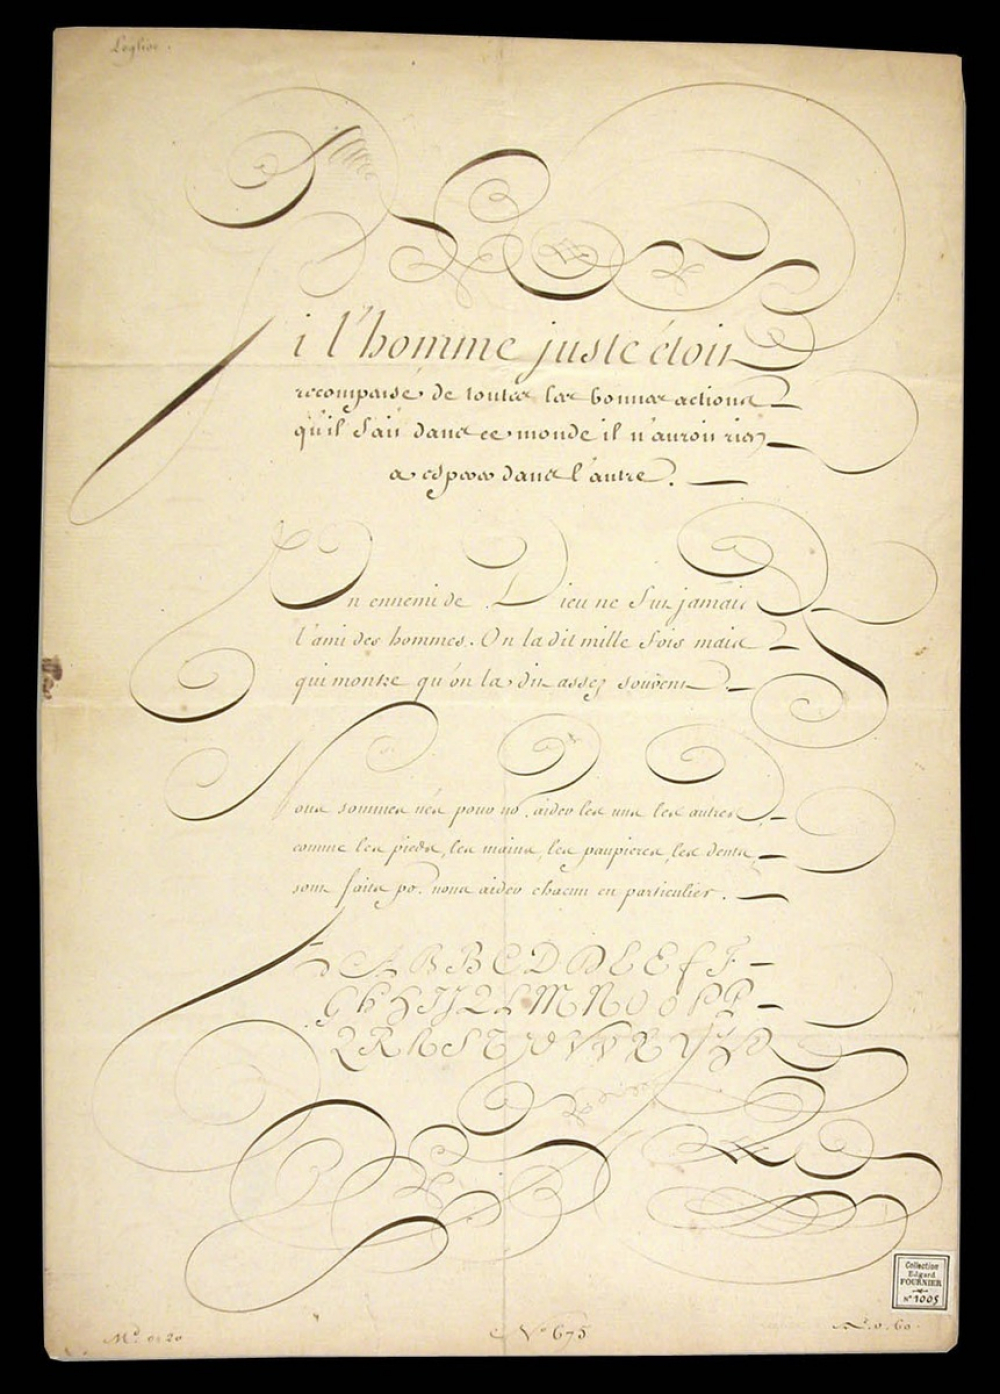 Leglise.
Si l'homme juste étoit
recompensé de toutes les bonnes actions
qu'il fait dans ce monde il n'auroit rien
a esperer dans l'autre.
Un ennemi de Dieu ne fut jamais
l'ami des hommes. On la dit mille fois mais
qui montre qu'on la dit assez souvent.
Nous sommes nés pour no. aider les uns les autres
comme les pieds, les mains, les paupieres, les dents,
sont faits po. nous aider chacun en particulier.
A A B B C D D E E F F
G H H I J L L M N O O P P
Q R R S T V V X Y Z
Collection
Edgard
FOURNIER
N° 1005
N° 675